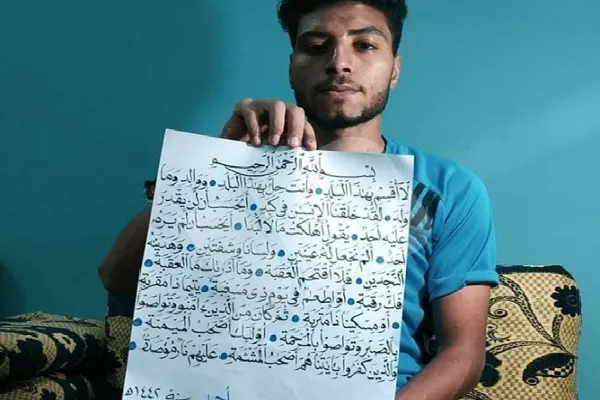 بِسْمِ اللَّهِ الرَّحْمَٰنِ الرَّحِيمِ
لَا أُقْسِمُ بِهَٰذَا الْبَلَدِ • وَأَنتَ حِلٌّ بِهَٰذَا الْبَلَدِ • وَوَالِدٍ وَمَا
وَلَدَ • لَقَدْ خَلَقْنَا الْإِنسَٰنَ فِي كَبَدٍ • أَيَحْسَبُ أَن لَّن يَقْدِرَ
عَلَيْهِ أَحَدٌ • يَقُولُ أَهْلَكْتُ مَالًا لُّبَدًا • أَيَحْسَبُ أَن لَّمْ يَرَهُ
أَحَدٌ • أَلَمْ نَجْعَل لَّهُ عَيْنَيْنِ • وَلِسَانًا وَشَفَتَيْنِ • وَهَدَيْنَٰهُ
النَّجْدَيْنِ • فَلَا اقْتَحَمَ الْعَقَبَةَ • وَمَا أَدْرَىٰكَ مَا الْعَقَبَةُ
فَكُّ رَقَبَةٍ • أَوْ إِطْعَٰمٌ فِي يَوْمٍ ذِي مَسْغَبَةٍ • يَتِيمًا ذَا مَقْرَبَةٍ
• أَوْ مِسْكِينًا ذَا مَتْرَبَةٍ • ثُمَّ كَانَ مِنَ الَّذِينَ آمَنُوا وَتَوَاصَوْا
بِالصَّبْرِ وَتَوَاصَوْا بِالْمَرْحَمَةِ • أُولَٰئِكَ أَصْحَٰبُ الْمَيْمَنَةِ •
وَالَّذِينَ كَفَرُوا بِآيَٰتِنَا هُمْ أَصْحَٰبُ الْمَشْئَمَةِ • عَلَيْهِمْ نَارٌ مُّؤْصَدَةٌ •
سنة ١٤٤٢هـ